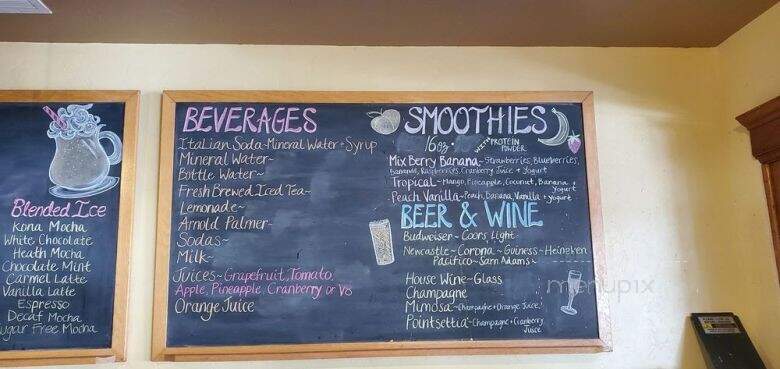 Blended Ice
Kona Mocha
White Chocolate
Heath Mocha
Chocolate Mint
Carmel Latte
Vanilla Latte
Espresso
Decaf Mocha
Sugar Free Mocha
BEVERAGES
Italian Soda~Mineral Water + Syrup
Mineral Water~
Bottle Water~
Fresh Brewed Iced Tea~
Lemonade~
Arnold Palmer~
Sodas~
Milk~
Juices~Grapefruit, Tomato,
Apple, Pineapple, Cranberry or V8
Orange Juice
SMOOTHIES
16oz. WITH PROTEIN
POWDER
Mix Berry Banana~Strawberries, Blueberries,
Banana, Raspberries, Cranberry Juice + Yogurt
Tropical~Mango, Pineapple, Coconut, Banana +
Yogurt
Peach Vanilla~Peach, Banana, Vanilla + yogurt
BEER & WINE
Budweiser~Coors Light
Newcastle~Corona~Guiness~Heineken
Pacifico~Sam Adams~
House Wine~Glass
Champagne
Mimosa~Champagne + Orange Juice
Pointsettia~Champagne + Cranberry
Juice
menupix